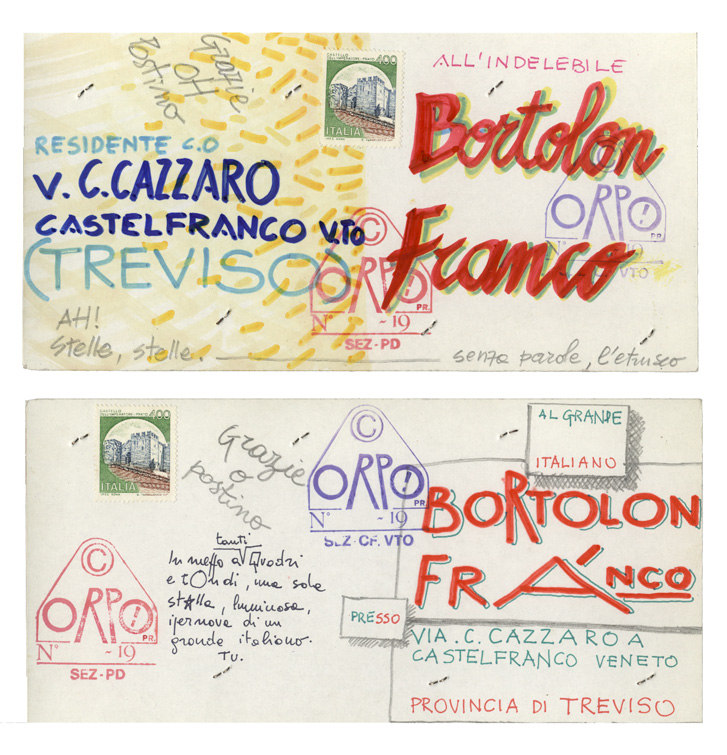 Grazie
OH
Postino
CASTELLO
DELL'IMPERATORE - PRATO 400
ITALIA
ALL'INDELEBILE
Bortolon
Franco
RESIDENTE C.O
V. C. CAZZARO
CASTELFRANCO V.TO
(TREVISO)
©
ORPO!
PR.
N° -19
SEZ-PD
©
ORPO!
PR.
N°
CF. VTO
AH!
Stelle, stelle.
senza parole, l'etrusco
CASTELLO
DELL'IMPERATORE - PRATO 400
ITALIA
Grazie
o
postino
©
ORPO!
PR.
N° -19
SEZ-CF. VTO
AL GRANDE
ITALIANO
BORTOLON
FRANCO
PRESSO
VIA . C. CAZZARO A
CASTELFRANCO VENETO
PROVINCIA DI TREVISO
©
ORPO!
PR.
N° -19
SEZ-PD
tanti
In mezzo a Quadri
e tOndi, una sola
stAlla, luminosa,
ipernova di un
grande italiano.
Tu.